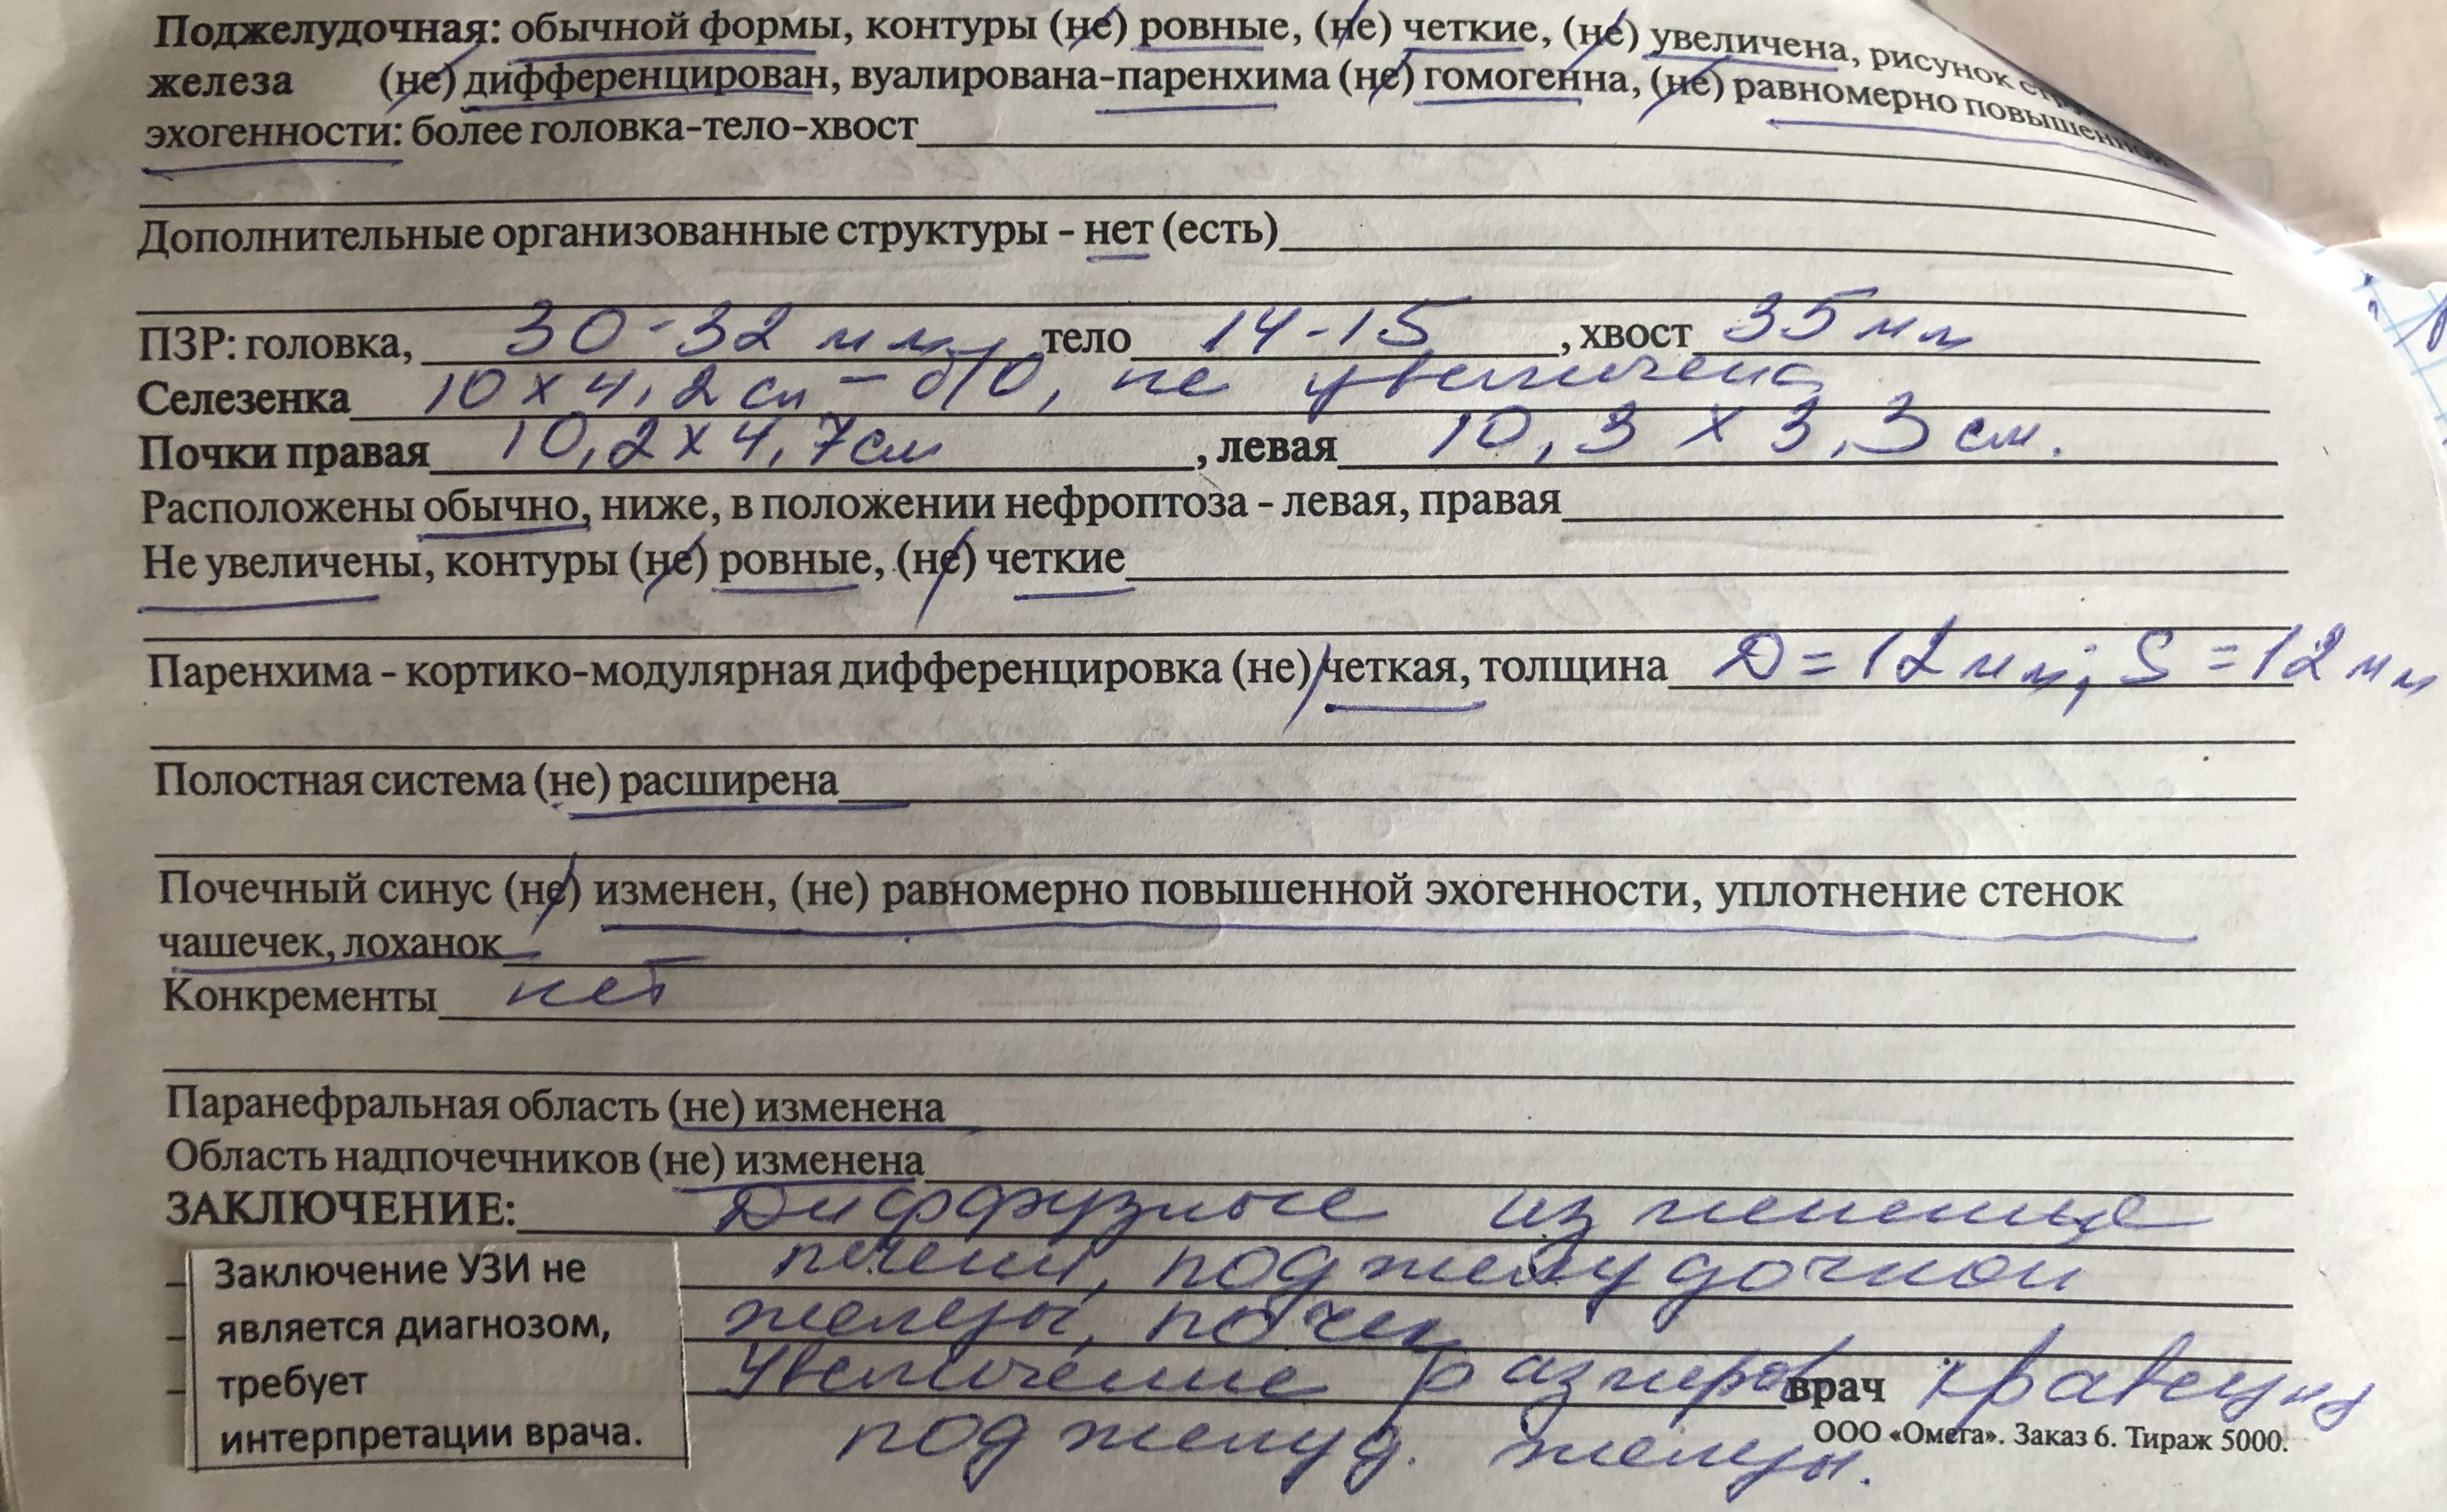 Поджелудочная: обычной формы, контуры (не) ровные, (не) четкие, (не) увеличена, рисунок
железа (не) дифференцирован, вуалирована-паренхима (не) гомогенна, (не) равномерно повышенной
эхогенности: более головка-тело-хвост
Дополнительные организованные структуры - нет (есть)
ПЗР: головка, 30-32 мм тело 14-15, хвост 35 мм
Селезенка 10 х 4,2 см - б/о, не увеличена
Почки правая 10,2 х 4,7 см, левая 10,3 х 3,3 см.
Расположены обычно, ниже, в положении нефроптоза - левая, правая
Не увеличены, контуры (не) ровные, (не) четкие
Паренхима - кортико-модулярная дифференцировка (не) четкая, толщина D = 12 мм; S = 12 мм
Полостная система (не) расширена
Почечный синус (не) изменен, (не) равномерно повышенной эхогенности, уплотнение стенок
чашечек, лоханок
Конкременты нет
Паранефральная область (не) изменена
Область надпочечников (не) изменена
ЗАКЛЮЧЕНИЕ: Диффузные изменения
печени, поджелудочной
железы, почек
Увеличение размеров врач
поджелуд. железы.
Заключение УЗИ не
является диагнозом,
требует
интерпретации врача.
ООО «Омега». Заказ 6. Тираж 5000.